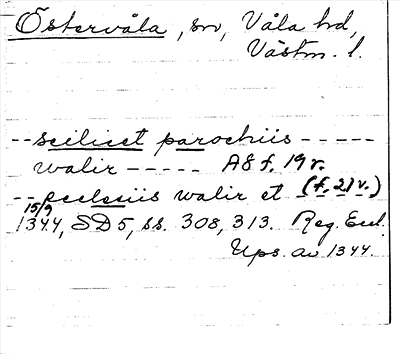 Östervåla, sn, Våla hd,
Västm. l.
-- scilicet parochiis -----
walir ----- A8 f. 19r.
-- ecclesiis walir et (f. 21v.)
15/9
1344, SD5, ss. 308, 313. Reg. Eccl.
Ups. av 1344.